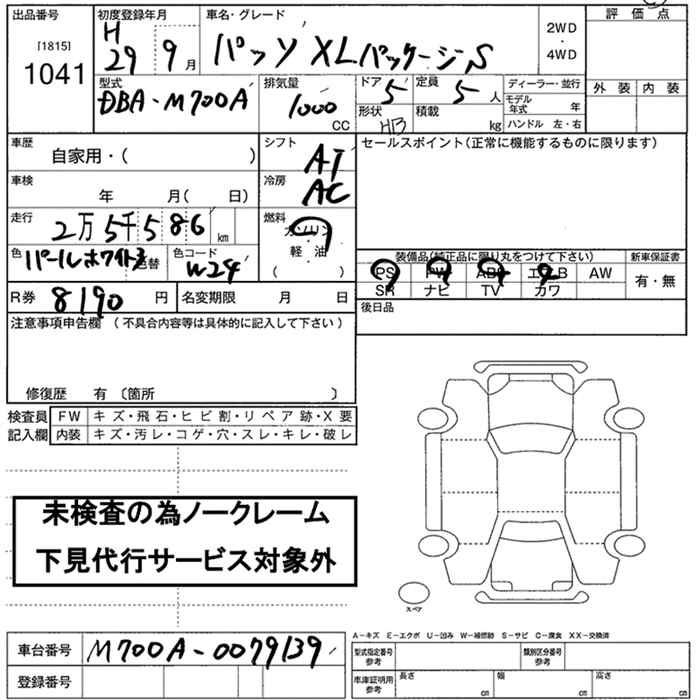 出品番号
[1815]
1041
初度登録年月
H
29 9 月
車名・グレード
パッソ XLパッケージS
2WD
・
4WD
評価点
外装 内装
型式
DBA-M700A
排気量
1000
CC
ドア 5
形状 HB
定員 5 人
積載 kg
ディーラー・並行
モデル年式 年
ハンドル 左・右
車歴
自家用・( )
シフト
AT
セールスポイント(正常に機能するものに限ります)
車検
年 月( 日)
冷房
AC
走行
2万5千586 km
燃料
ガソリン
軽 油
( )
色
パールホワイト3
色替
色コード
W24
装備品(純正品に限り丸をつけて下さい)
PS PW ABS エアB AW
SR ナビ TV カワ
新車保証書
有・無
R券 8190 円
名変期限 月 日
後日品
注意事項申告欄 (不具合内容等は具体的に記入して下さい)
修復歴 有 〔箇所 〕
検査員
記入欄
FW キズ・飛石・ヒビ割・リペア跡・X要
内装 キズ・汚レ・コゲ・穴・スレ・キレ・破レ
未検査の為ノークレーム
下見代行サービス対象外
スペア
車台番号 M700A-0079139
登録番号
A-キズ E-エクボ U-凹み W-補修跡 S-サビ C-腐食 XX-交換済
型式指定番号
参考
類別区分番号
参考
車庫証明用
参考
長さ cm
幅 cm
高さ cm